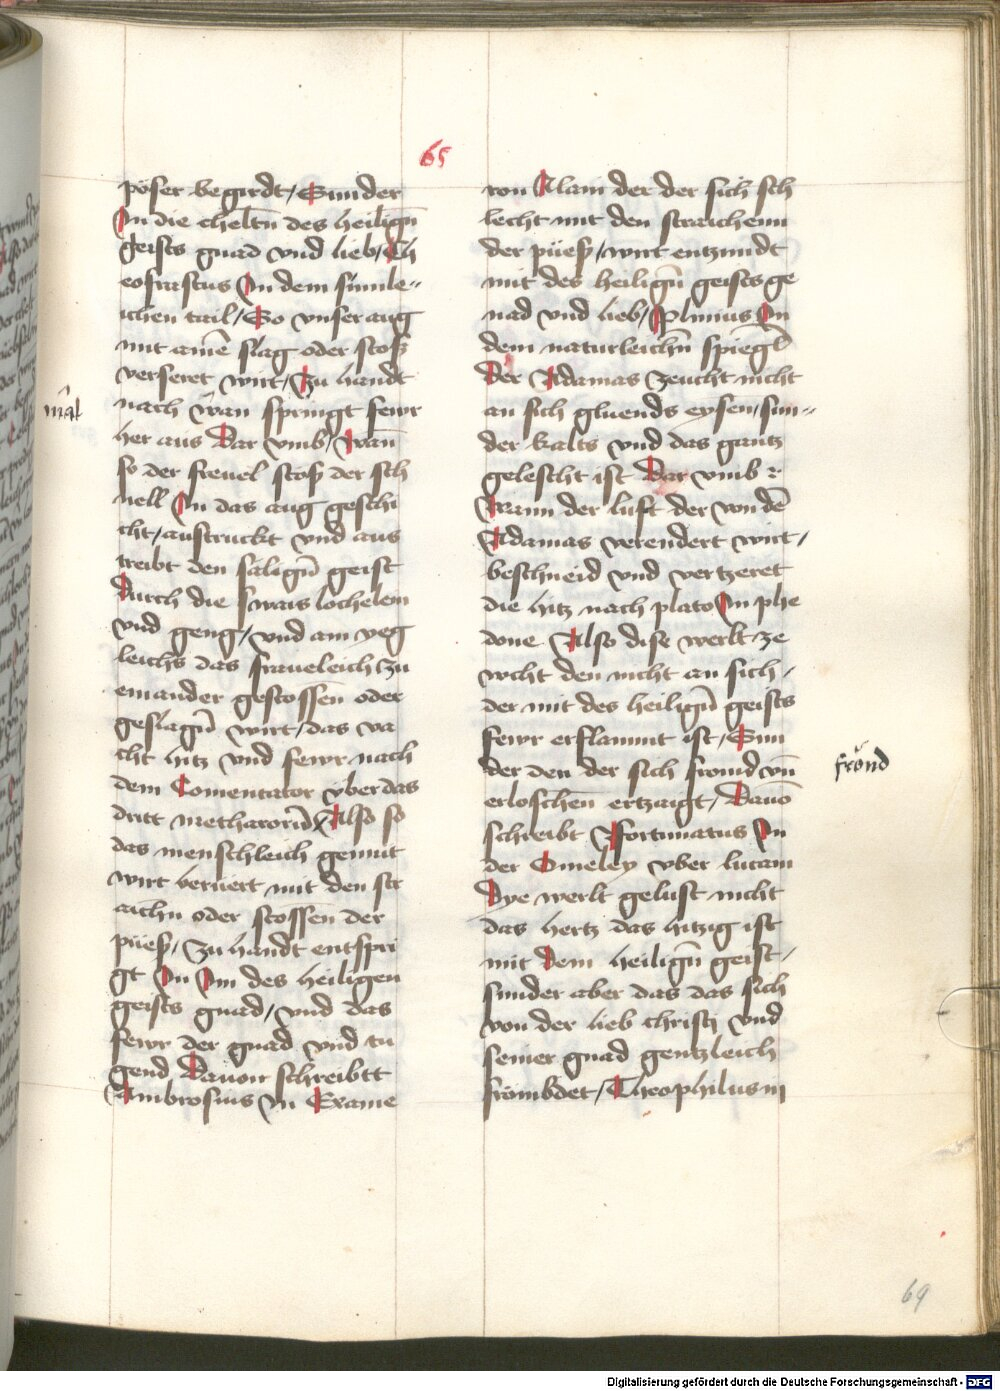 65
pöser begirdt/ Sunder
In die cheltn̄ des heilign̄
geists gnad vnd lieb/ Th
eofrastus In dem sinnle-
ichen tail/ So vnser aug
mit aīnē slag oder stosß
verseret wirt/ Zu handt
nach wan springt fewr
mal
her aus Dar vmb/ Wan̄
so der freuel stosß der sch
nell In das aug geschi
cht/ austruckt vnd aus
treibt den sälign̄ geist
Durch die swais löchelein
vnd geng/ vnd ain yeg
leichs das fräueleich zu
einander gestossen oder
geslagn̄ wirt/ das va
cht hitz vnd fewr nach
dem Comentator über das
dritt metharorū/ Also so
das menschleich gemüt
wirt berüert mit den str
aichn̄ oder stossen der
püesß/ Zu handt entspri
gt In Im des heiligen
geists gnad/ vnd das
fewr der gnad vnd tu
gend Dauon schreibtt
Ambrosius In Exame
ron Alain der der sich sch
lecht mit den straichenn
der püesß/ wirt entzündt
mit des heilign̄ geists ge
nad vnd lieb/ Plinius In
dem naturleichn̄ spiegl̄
Der Adamas zeucht nicht
an sich glüends eysen/ sun-
der kalts vnd das gantz
gelescht ist Dar vmb
Wann der luft der von dē
Adamas verendert wirt/
beschneid vnd vertzeret
die hitz nach plato In phe
done Also dise werlt ze
wcht den nicht an sich/
der mit des heilign̄ geists
fewr erflammt ist/ Sun
der den der sich frömd vn̄
frömd
erloschen ertzaigt/ Dauō
schreibt Fortunatus In
der Omeley vber lucam
Dye werlt gelust nicht
das hertz das hitzig ist
mit dem heilign̄ geist/
sunder aber das das sich
von der lieb christi vnd
seiner gnad gentzleich
frömbdet/ Theophilus in
69
Digitalisierung gefördert durch die Deutsche Forschungsgemeinschaft - DFG